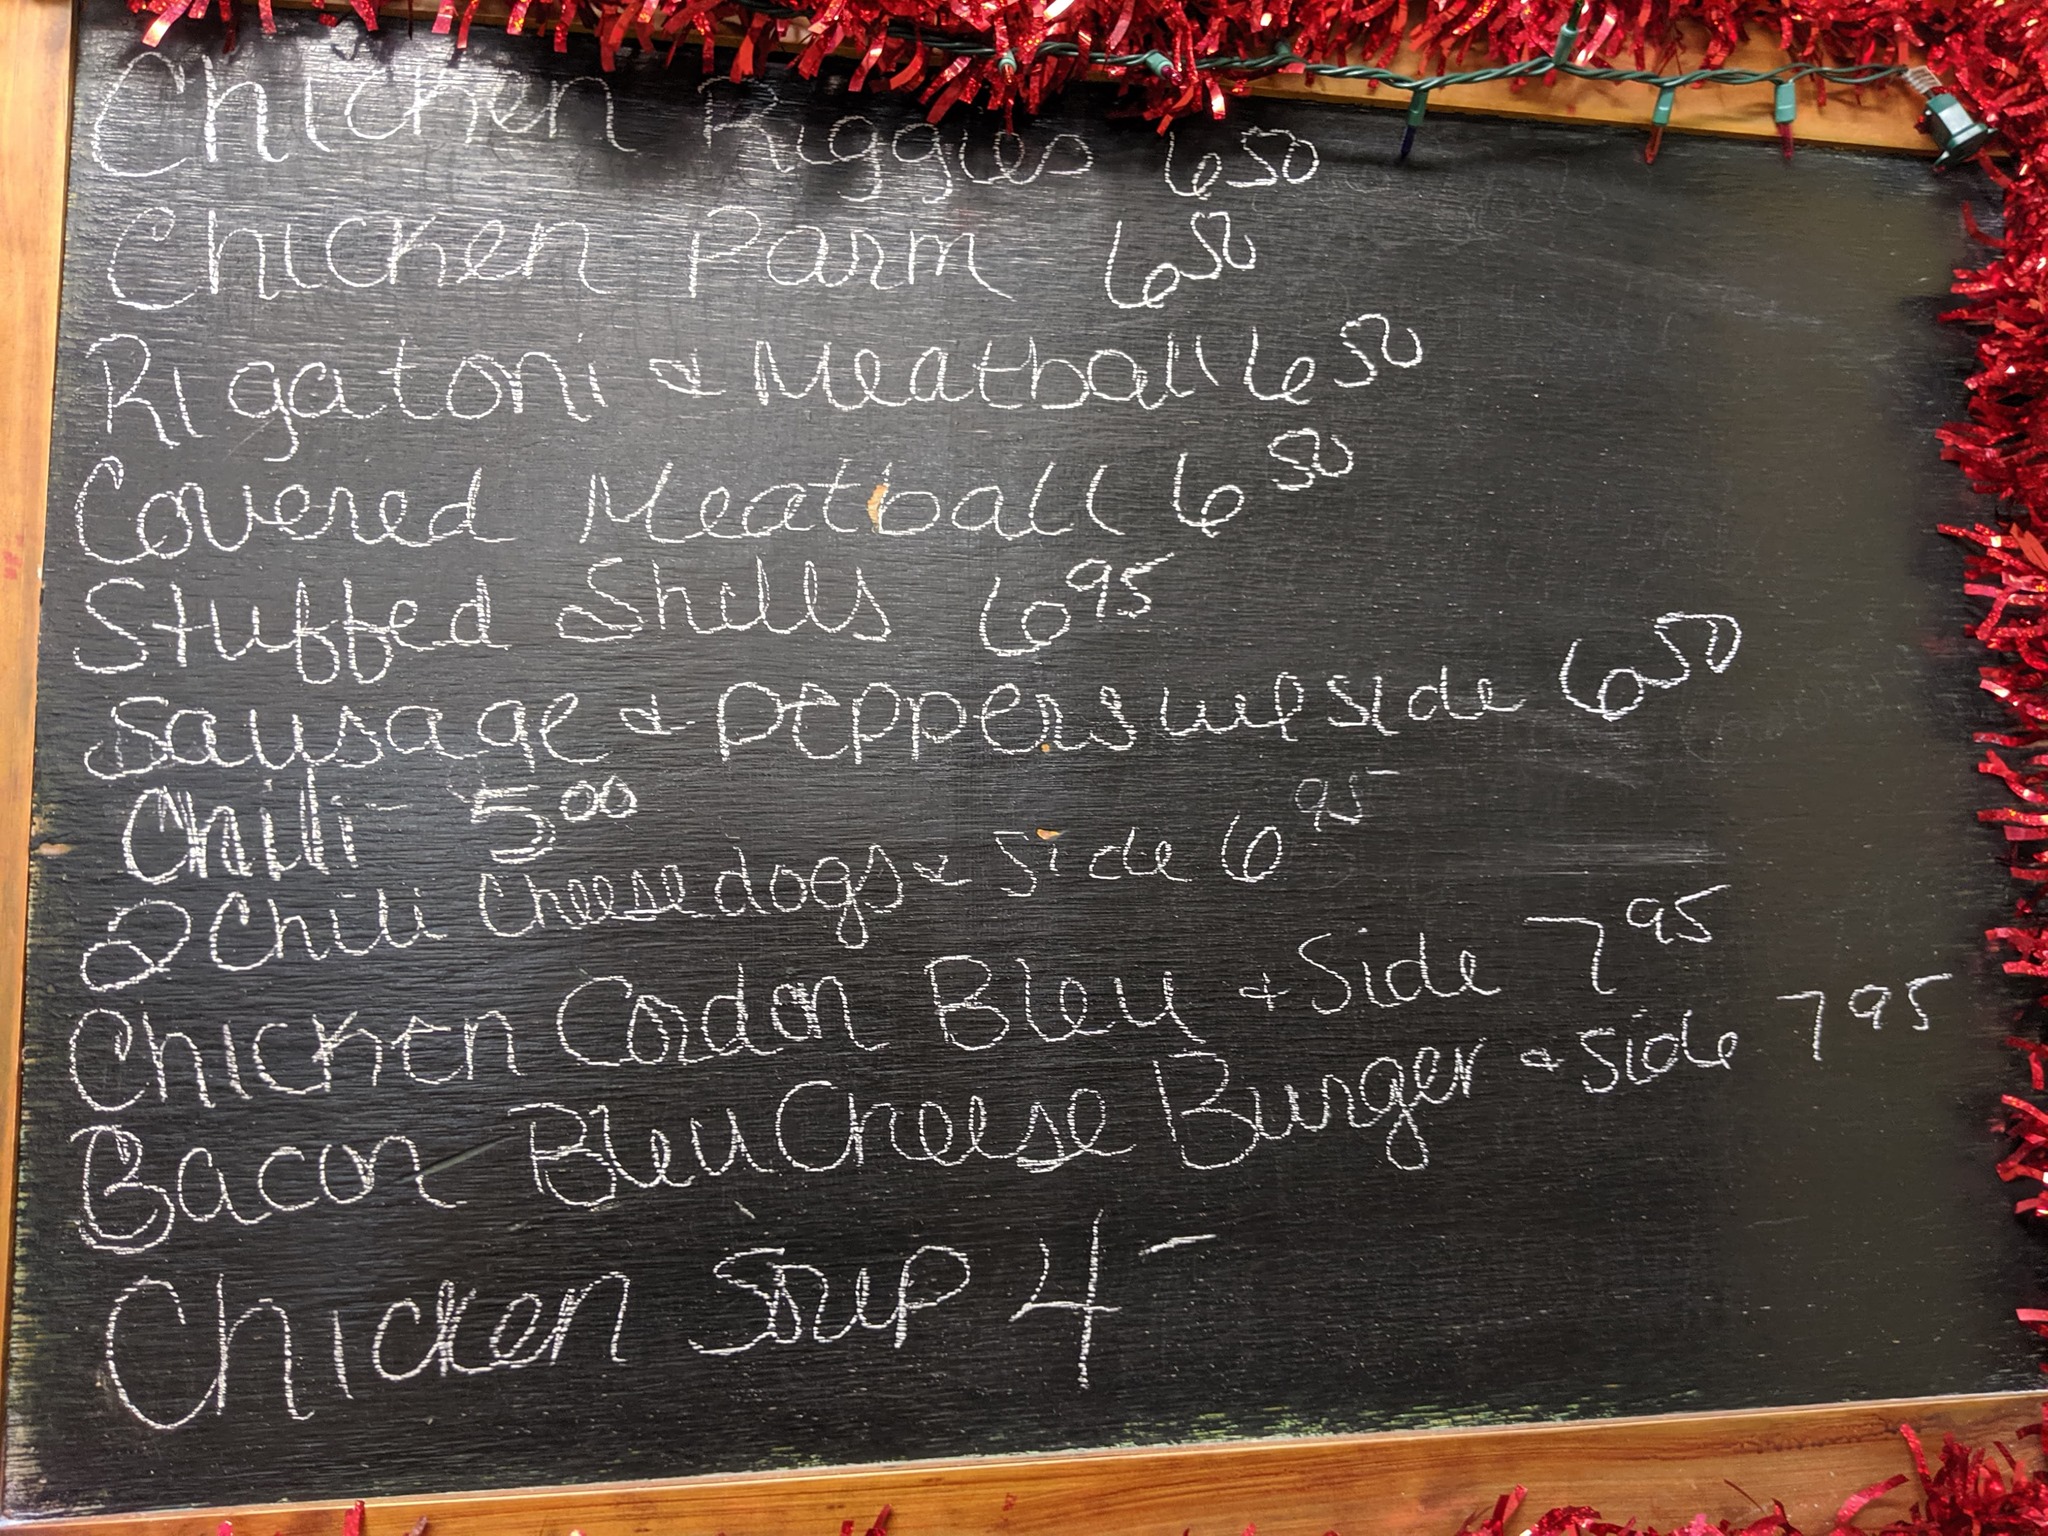 Chicken Riggies 6 50
Chicken Parm 6 50
Rigatoni & Meatball 6 50
Covered Meatball 6 50
Stuffed Shells 6 95
Sausage & Peppers w/ side 6 50
Chili - 5 00
2 Chili Cheesedogs & Side 6 95
Chicken Cordon Bleu & Side 7 95
Bacon Bleu Cheese Burger & side 7 95
Chicken Soup 4 -